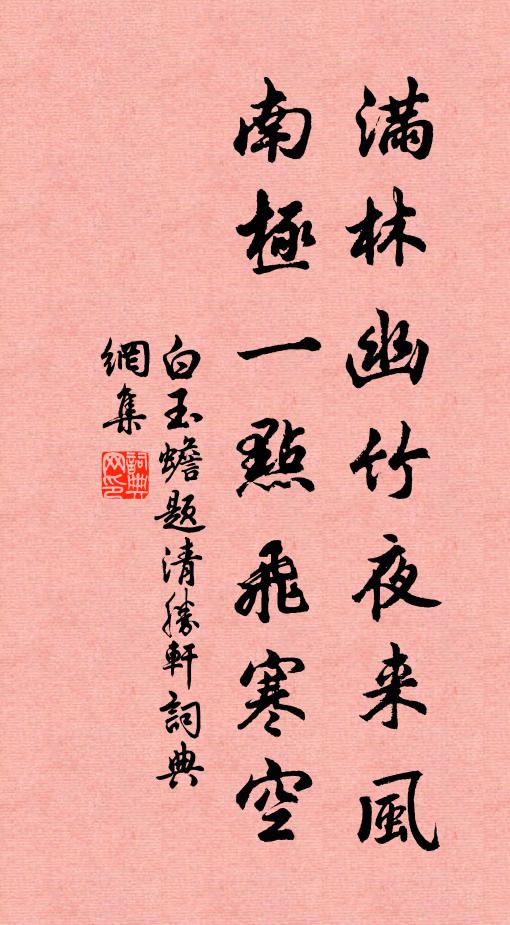 滿林幽竹夜来風
南極一點飛寒空
白玉蟾题清勝軒詞典
網集
詞典网印